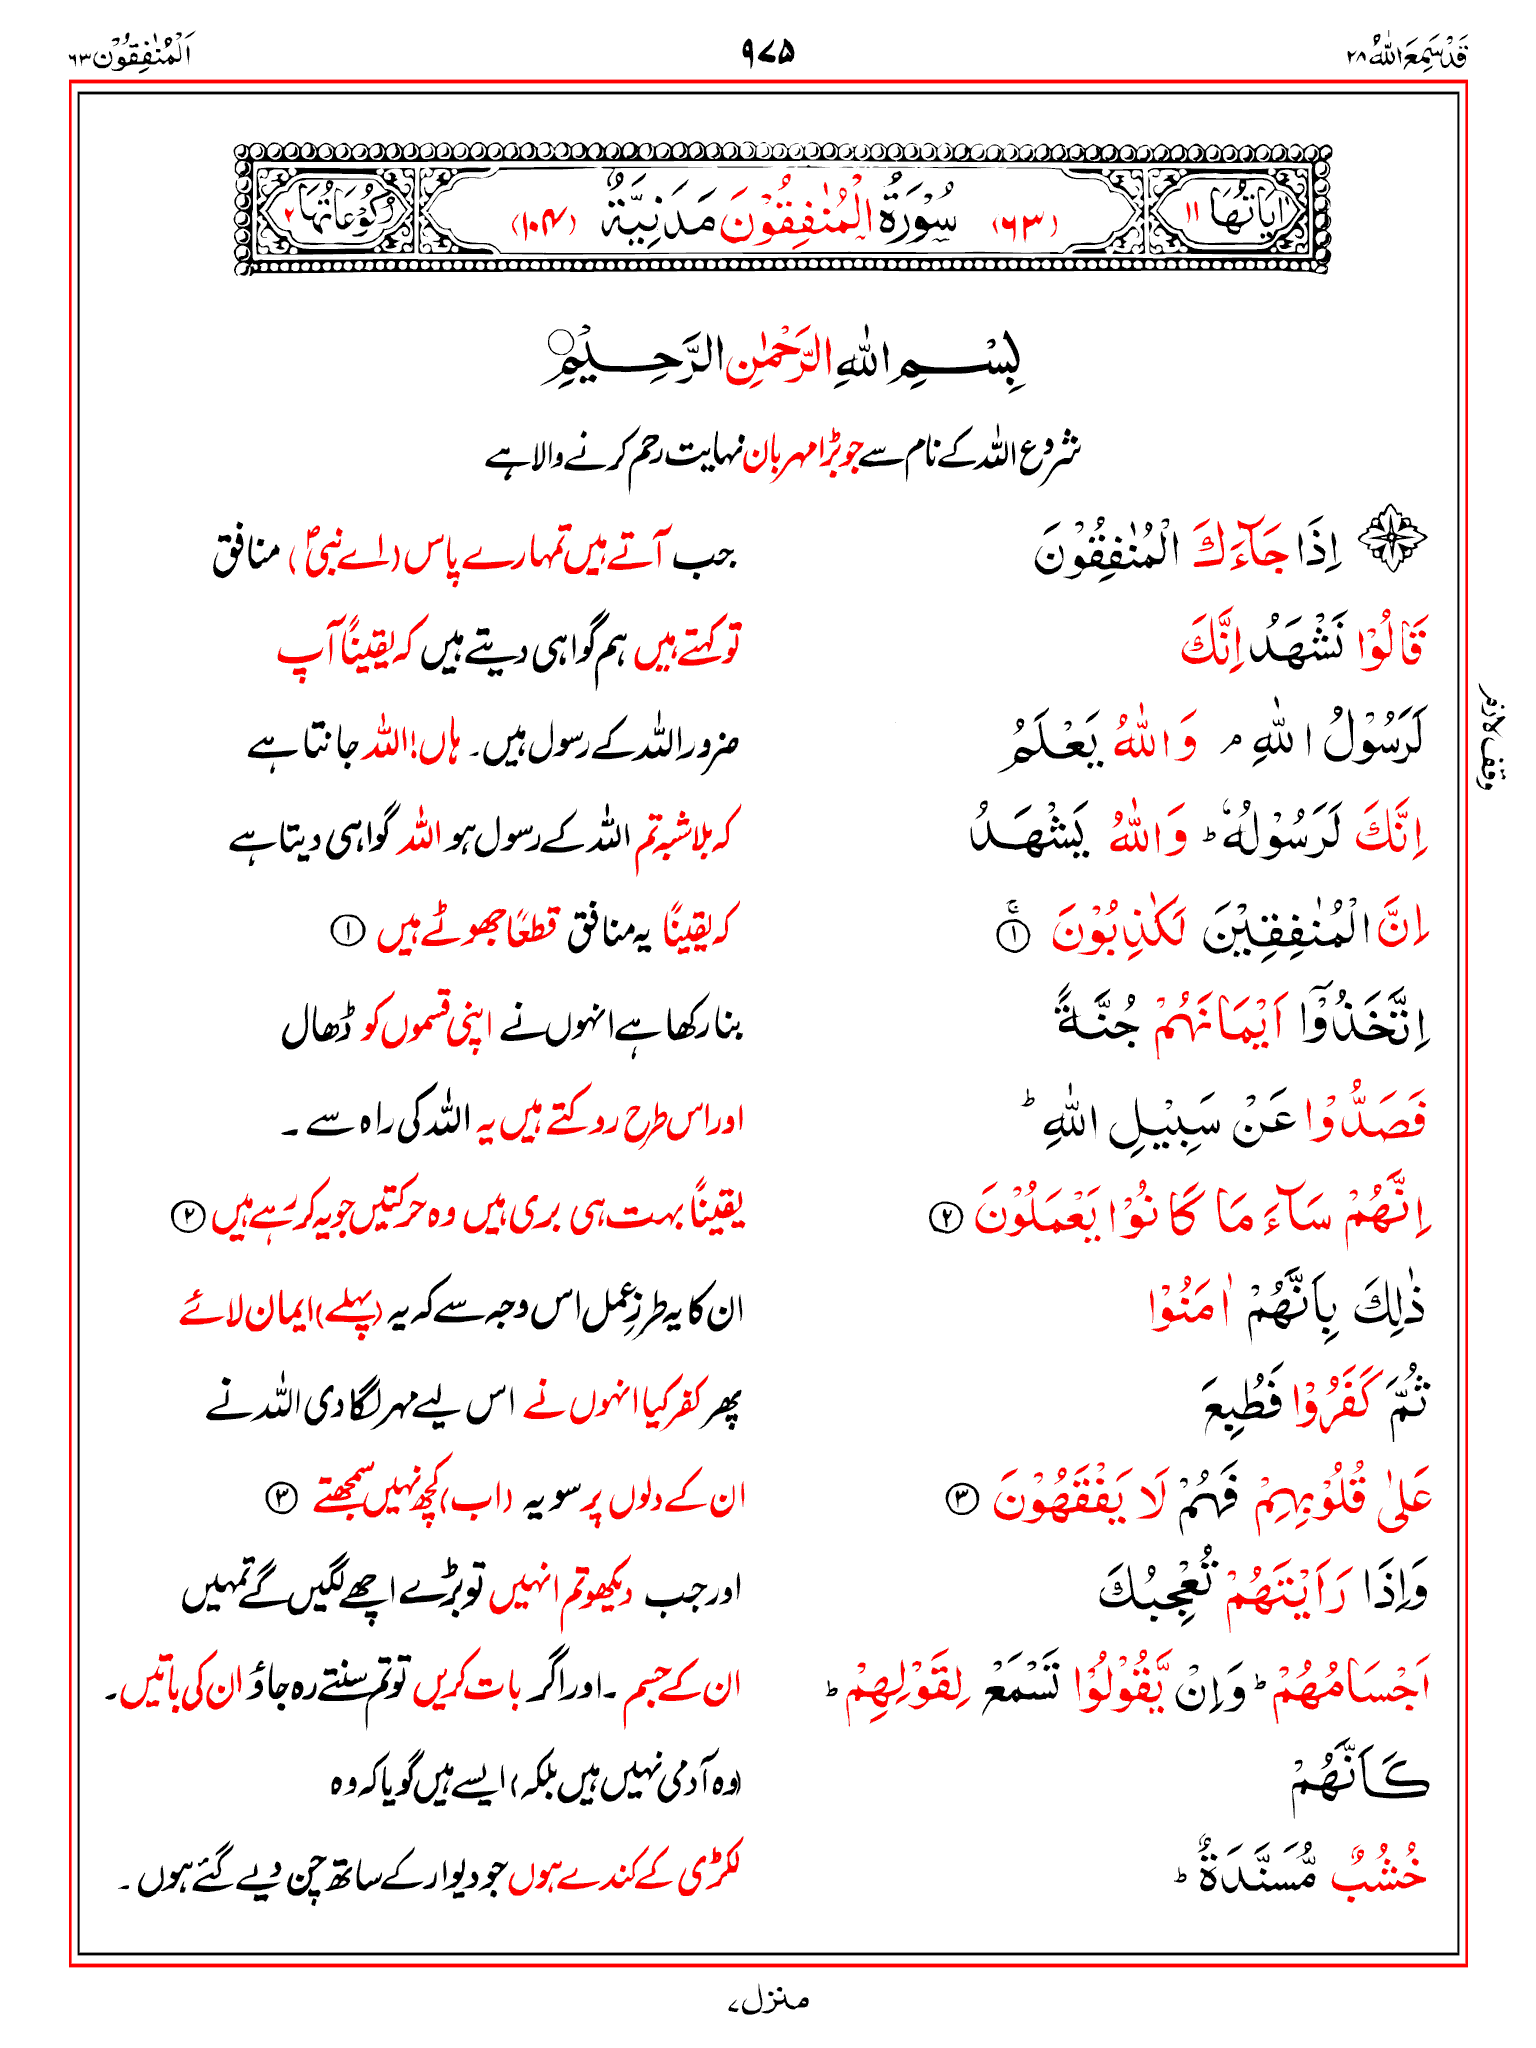 قَدْ سَمِعَ اللّٰهُ ۲۸
۹۷۵
اَلْمُنٰفِقُوْن ۶۳
اٰيَاتُهَا ۱۱
(۶۳) سُوْرَةُ الْمُنٰفِقُوْنَ مَدَنِيَّةٌ (۱۰۴)
رُكُوْعَاتُهَا ۲
بِسْمِ اللّٰهِ الرَّحْمٰنِ الرَّحِيْمِ ○
شروع اللہ کے نام سے جو بڑا مہربان نہایت رحم کرنے والا ہے
اِذَا جَآءَكَ الْمُنٰفِقُوْنَ
جب آتے ہیں تمہارے پاس (اے نبیؐ) منافق
قَالُوْا نَشْهَدُ اِنَّكَ
تو کہتے ہیں ہم گواہی دیتے ہیں کہ یقیناً آپ
لَرَسُوْلُ اللّٰهِ ۘ وَاللّٰهُ يَعْلَمُ
ضرور اللہ کے رسول ہیں۔ ہاں! اللہ جانتا ہے
وقف لازم
اِنَّكَ لَرَسُوْلُهٗ ؕ وَاللّٰهُ يَشْهَدُ
کہ بلاشبہ تم اللہ کے رسول ہو اللہ گواہی دیتا ہے
اِنَّ الْمُنٰفِقِيْنَ لَكٰذِبُوْنَ ۚ ①
کہ یقیناً یہ منافق قطعاً جھوٹے ہیں ①
اِتَّخَذُوْۤا اَيْمَانَهُمْ جُنَّةً
بنا رکھا ہے انہوں نے اپنی قسموں کو ڈھال
فَصَدُّوْا عَنْ سَبِيْلِ اللّٰهِ ؕ
اور اس طرح روکتے ہیں یہ اللہ کی راہ سے ۔
اِنَّهُمْ سَآءَ مَا كَانُوْا يَعْمَلُوْنَ ②
یقیناً بہت ہی بری ہیں وہ حرکتیں جو یہ کر رہے ہیں ②
ذٰلِكَ بِاَنَّهُمْ اٰمَنُوْا
ان کا یہ طرزِ عمل اس وجہ سے کہ یہ (پہلے) ایمان لائے
ثُمَّ كَفَرُوْا فَطُبِعَ
پھر کفر کیا انہوں نے اس لیے مہر لگا دی اللہ نے
عَلٰى قُلُوْبِهِمْ فَهُمْ لَا يَفْقَهُوْنَ ③
ان کے دلوں پر سو یہ (اب) کچھ نہیں سمجھتے ③
وَاِذَا رَاَيْتَهُمْ تُعْجِبُكَ
اور جب دیکھو تم انہیں تو بڑے اچھے لگیں گے تمہیں
اَجْسَامُهُمْ ؕ وَاِنْ يَّقُوْلُوْا تَسْمَعْ لِقَوْلِهِمْ ؕ
ان کے جسم ۔ اور اگر بات کریں تو تم سنتے رہ جاؤ ان کی باتیں ۔
كَاَنَّهُمْ
(وہ آدمی نہیں ہیں بلکہ) ایسے ہیں گویا کہ وہ
خُشُبٌ مُّسَنَّدَةٌ ؕ
لکڑی کے کندے ہوں جو دیوار کے ساتھ چن دیے گئے ہوں ۔
منزل ۷